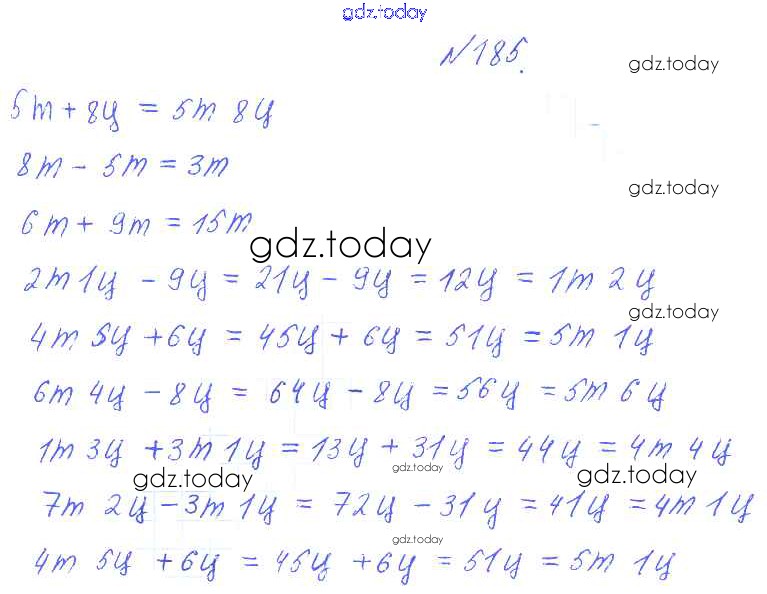 gdz.today
№185.
gdz.today
5т + 8ц = 5т 8ц
8т - 5т = 3т
gdz.today
6т + 9т = 15т
gdz.today
2т 1ц - 9ц = 21ц - 9ц = 12ц = 1т 2ц
gdz.today
4т 5ц + 6ц = 45ц + 6ц = 51ц = 5т 1ц
6т 4ц - 8ц = 64ц - 8ц = 56ц = 5т 6ц
1т 3ц + 3т 1ц = 13ц + 31ц = 44ц = 4т 4ц
gdz.today gdz.today gdz.today
7т 2ц - 3т 1ц = 72ц - 31ц = 41ц = 4т 1ц
gdz.today
4т 5ц + 6ц = 45ц + 6ц = 51ц = 5т 1ц